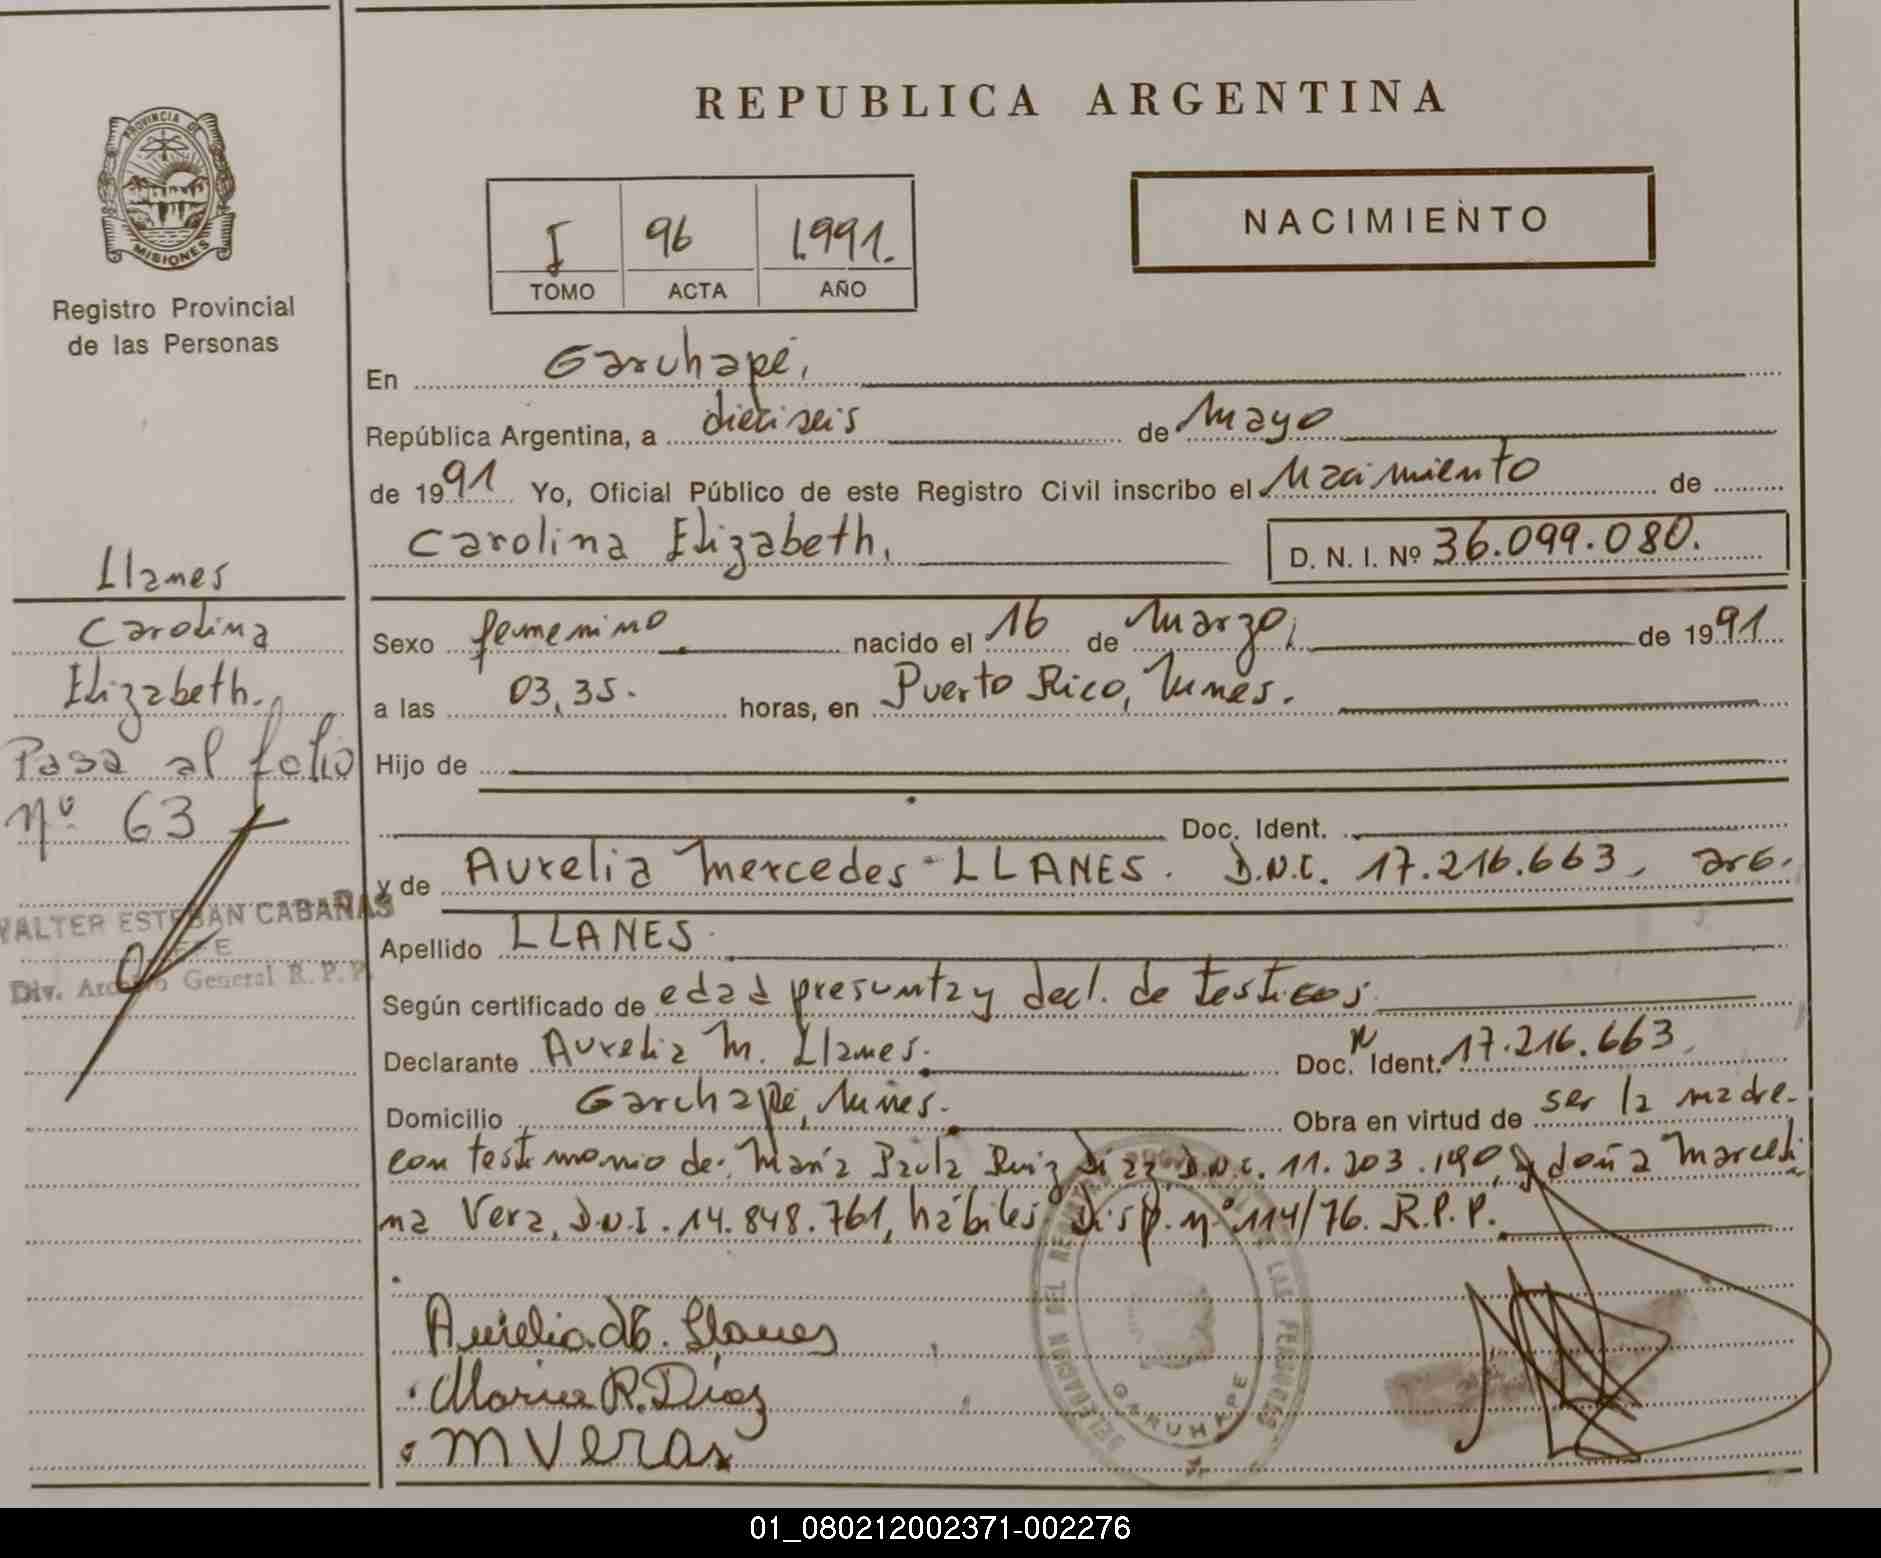 REPUBLICA ARGENTINA
PROVINCIA DE
MISIONES
Registro Provincial
de las Personas
I 96 1.991.
TOMO ACTA AÑO
NACIMIENTO
En Garuhapé,
República Argentina, a dieciseis de Mayo
de 1991 Yo, Oficial Público de este Registro Civil inscribo el Nacimiento de
Carolina Elizabeth, D. N. I. Nº 36.099.080.
Llanes
Carolina
Elizabeth.
Pasa al folio
nº 63
WALTER ESTEBAN CABAÑAS
JEFE
Div. Archivo General R.P.P.
Sexo femenino nacido el 16 de Marzo, de 1991
a las 03,35. horas, en Puerto Rico, Mnes.
Hijo de
Doc. Ident.
y de Aurelia Mercedes LLANES. D.N.I. 17.216.663, arg.
Apellido LLANES
Según certificado de edad presunta y decl. de testigos.
Declarante Aurelia M. Llanes. Doc. N Ident. 17.216.663
Domicilio Garuhapé, Mnes. Obra en virtud de ser la madre.
con testimonio de: María Paula Ruiz Diaz D.N.I. 11.203.190, y doña Marceli
na Vera, D.N.I. 14.848.761, hábiles Disp. nº 114/76. R.P.P.
Aurelia M. Llanes
Maria R. Diaz
M Vera
DELEGACION DEL REGISTRO PROVINCIAL DE LAS PERSONAS
GARUHAPE
01_080212002371-002276